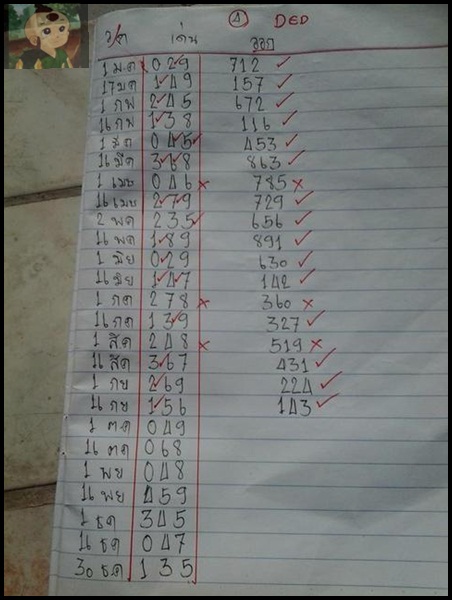 ④ DED
ว/ด เด่น ออก
1 มค 029 712 ✓
17 มค 149 157 ✓
1 กพ 245 672 ✓
16 กพ 138 116 ✓
1 มีค 045 453 ✓
16 มีค 368 863 ✓
1 เมย 046 × 785 ×
16 เมย 279 729 ✓
2 พค 235 656 ✓
16 พค 189 891 ✓
1 มิย 029 630 ✓
16 มิย 147 142 ✓
1 กค 278 × 360 ×
16 กค 139 327 ✓
1 สค 248 × 519 ×
16 สค 367 431 ✓
1 กย 269 224 ✓
16 กย 156 143 ✓
1 ตค 049
16 ตค 068
1 พย 048
16 พย 459
1 ธค 345
16 ธค 047
30 ธค 135